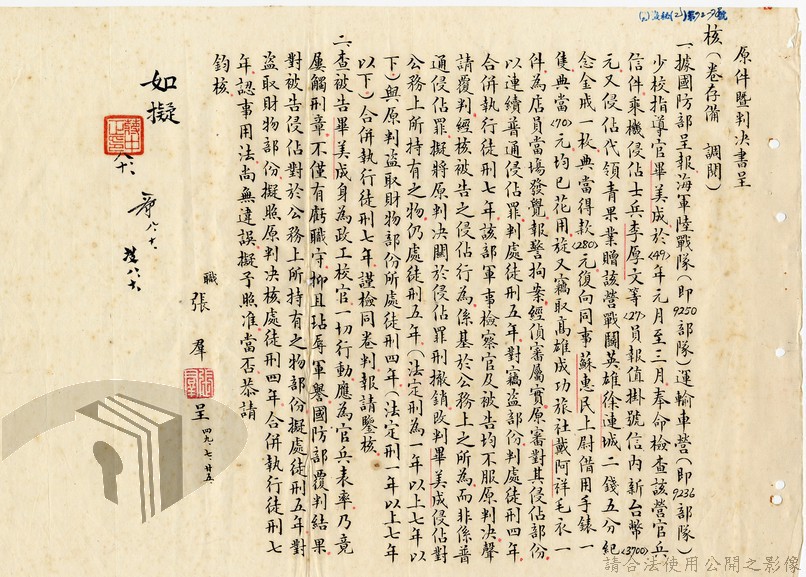 原件暨判决書呈
核(卷存備　調閱)
一據國防部呈報海軍陸戰隊(即9250部隊)運輸車營(即9236部隊)
少校指導官畢美成於(49)年元月至三月奉命檢查該營官兵
信件乘機侵佔士兵李厚文等(27)員報值掛號信內新台幣(3700)
元又侵佔代領青果業贈該營戰鬪英雄徐連城二錢五分紀
念金戒一枚典當得款(280)元復向同事蘇惠民上尉借用手錶一
隻典當(70)元均已花用旋又竊取高雄成功旅社戴阿祥毛衣一
件為店員當場發覺報警拘案經偵審屬實原審對其侵佔部份
以連續普通侵佔罪判處徒刑五年對竊盜部份判處徒刑四年
合併執行徒刑七年該部軍事檢察官及被告均不服原判决聲
請覆判經核被告之侵佔行為係基於公務上之所為而非係普
通侵佔罪擬將原判决關於侵佔罪刑撤銷改判畢美成侵佔對
公務上所持有之物仍處徒刑五年(法定刑為一年以上七年以
下)與原判盜取財物部份所處徒刑四年(法定刑一年以上七年
以下)合併執行徒刑七年謹檢同卷判報請鑒核
二查被告畢美成身為政工校官一切行動應為官兵表率乃竟
屢觸刑章不僅有虧職守抑且玷辱軍譽國防部覆判結果
對被告侵佔對於公務上所持有之物部份擬處徒刑五年對
盜取財物部份擬照原判决核處徒刑四年合併執行徒刑七
年認事用法尚無違誤擬予照准當否恭請
鈞核
職張羣呈 四九、七、廿五
如擬
八、十、
請合法使用公開之影像